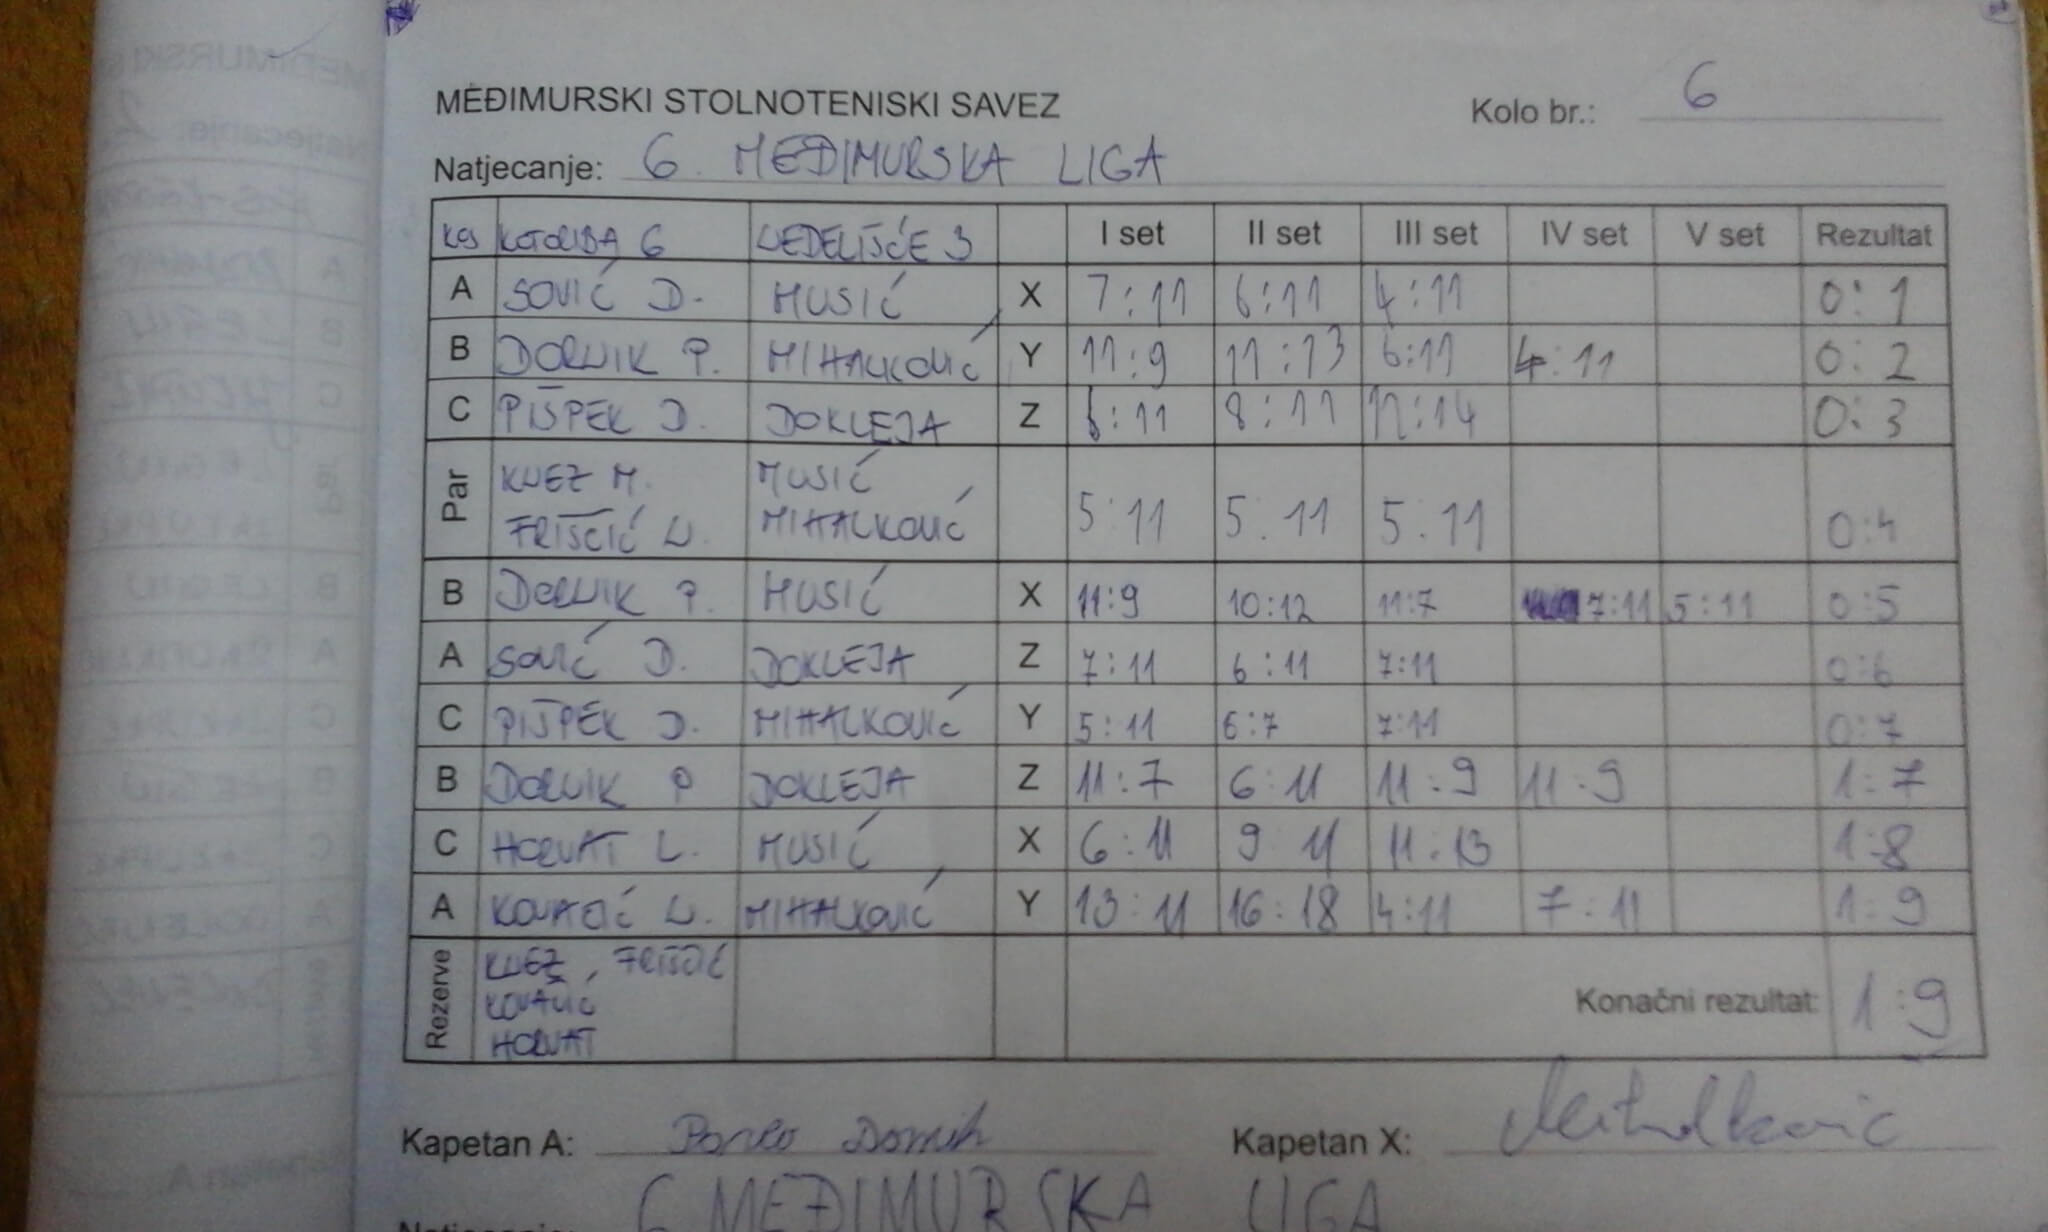 MEĐIMURSKI STOLNOTENISKI SAVEZ Kolo br.: 6
Natjecanje: 6. MEĐIMURSKA LIGA
KOTORIBA 6 NEDELIŠĆE 3 I set II set III set IV set V set Rezultat
A SOVIĆ D. MUSIĆ X 7:11 6:11 4:11 0:1
B DORNIK P. MIHALKOVIĆ Y 11:9 11:13 6:11 4:11 0:2
C PIŠPEK D. DOKLEJA Z 6:11 8:11 12:14 0:3
Par KNEZ M. MUSIĆ
FRIŠČIĆ N. MIHALKOVIĆ 5:11 5:11 5:11 0:4
B DORNIK P. MUSIĆ X 11:9 10:12 11:7 7:11 5:11 0:5
A SOVIĆ D. DOKLEJA Z 7:11 6:11 7:11 0:6
C PIŠPEK D. MIHALKOVIĆ Y 5:11 6:7 7:11 0:7
B DORNIK P DOKLEJA Z 11:7 6:11 11:9 11:9 1:7
C HORVAT L. MUSIĆ X 6:11 9:11 11:13 1:8
A KOVAČIĆ N. MIHALKOVIĆ Y 13:11 16:18 4:11 7:11 1:9
Rezerve KNEZ, FRIŠČIĆ
KOVAČIĆ
HORVAT
Konačni rezultat: 1:9
Kapetan A: Kapetan X: Mihalković
Natjecanje: 6 MEĐIMURSKA LIGA